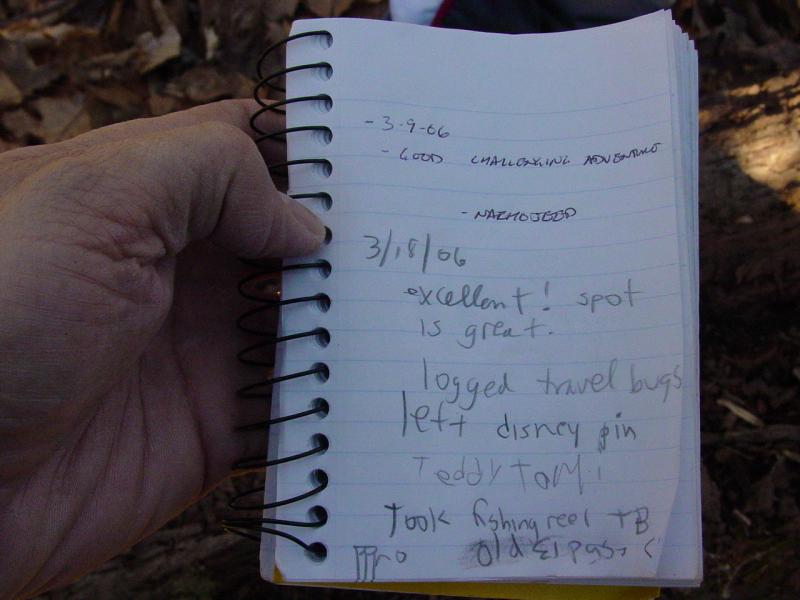 - 3-9-06
- GOOD CHALLENGING ADVENTURE
3/18/06
excellent! spot
is great.
logged travel bugs
left disney pin
Teddy Tom
Took fishing reel TB
old